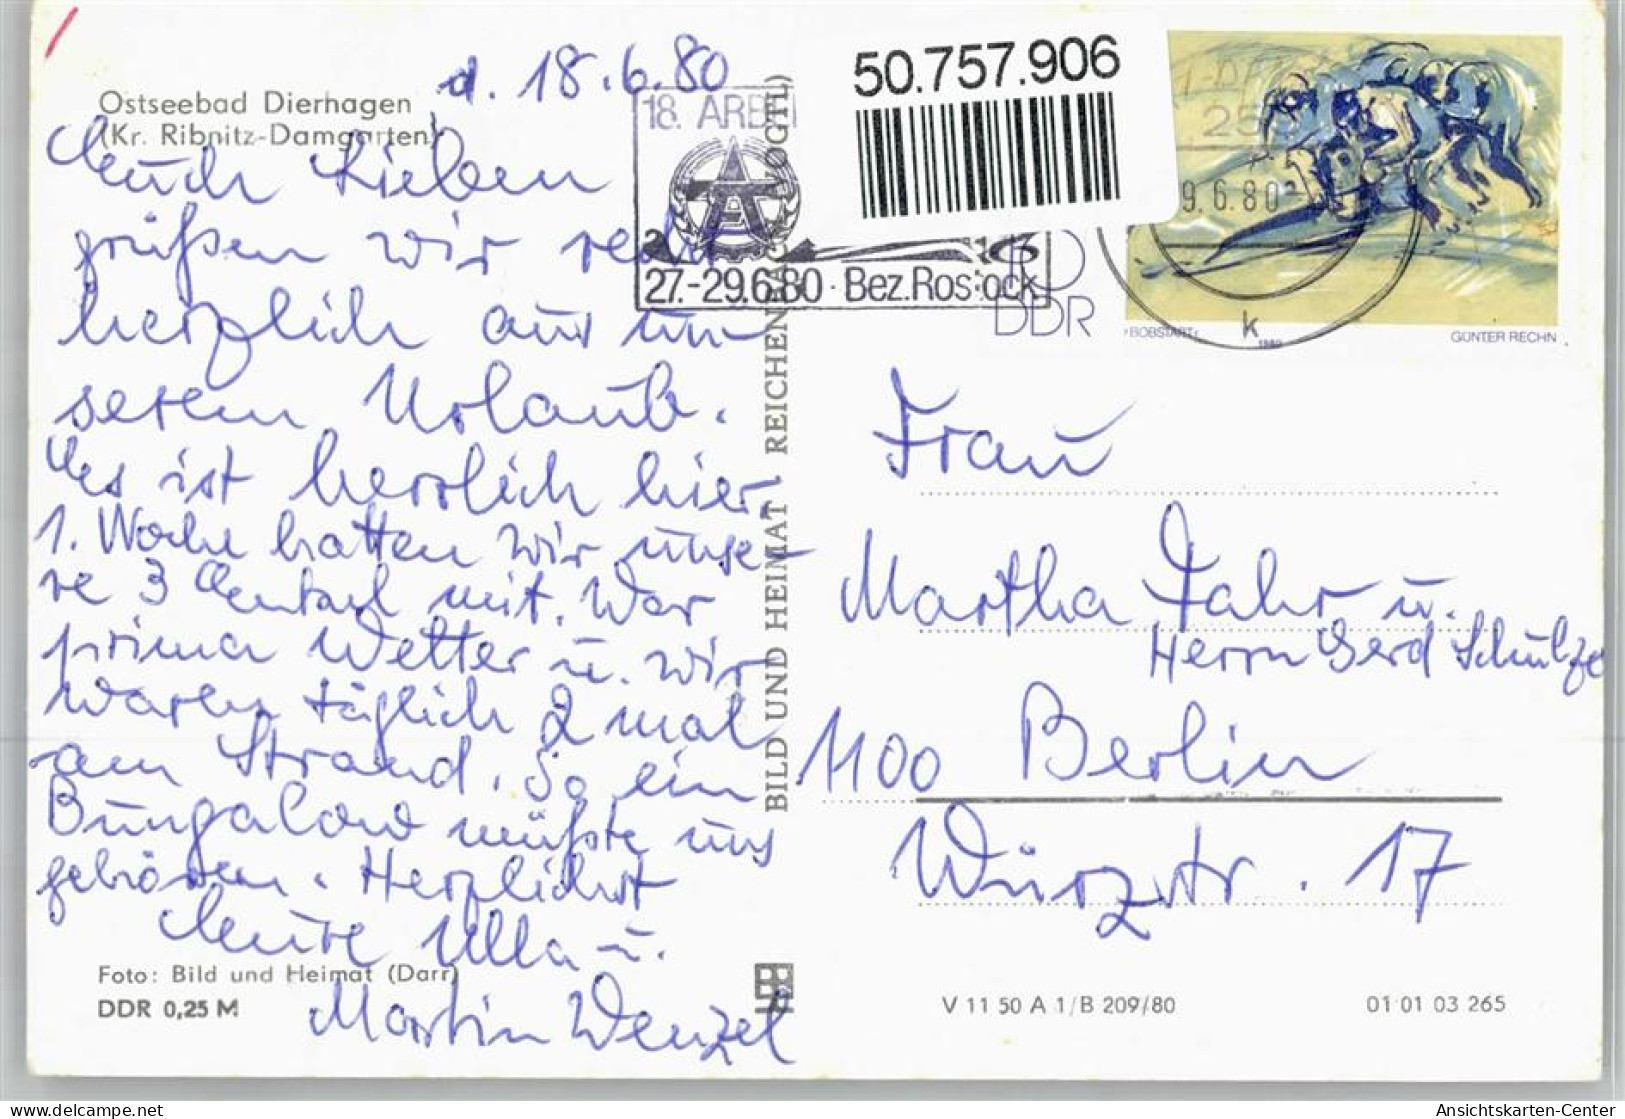 d. 18.6.80
Ostseebad Dierhagen
(Kr. Ribnitz-Damgarten)
Euch Lieben
grüßen wir recht
herzlich aus un-
serem Urlaub.
Es ist herrlich hier.
1. Woche hatten wir unse-
re 3 Enkel mit. War
prima Wetter u. wir
waren täglich 2 mal
am Strand. So ein
Bungalow müßte uns
gehören. Herzlichst
Eure Ulla u.
Martin Wenzel
Foto: Bild und Heimat (Darr)
DDR 0,25 M
BILD UND HEIMAT REICHENBACH (VOGTL)
18. ARBEI
27.-29.6.80 · Bez. Rostock
50.757.906
9.6.80
k
DDR
BOBSTART
1980
GÜNTER RECHN
Frau
Martha Fahr u.
Herrn Gerd Schulze
1100 Berlin
Würzstr. 17
V 11 50 A 1/B 209/80
01 01 03 265
delcampe.net
Ansichtskarten-Center